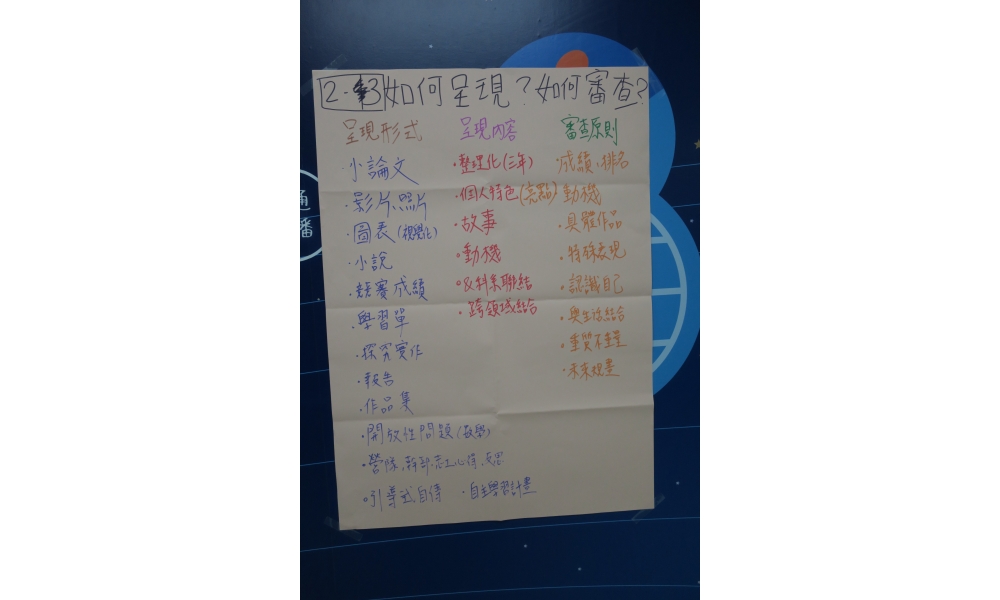 2-3 如何呈現？如何審查？
呈現形式
・小論文
・影片、照片
・圖表(視覺化)
・小說
・競賽成績
・學習單
・探究實作
・報告
・作品集
・開放性問題(數學)
・營隊、幹部、志工心得、反思
・引導式自傳
・自主學習計畫
呈現內容
・整理化(三年)
・個人特色(亮點)
・故事
・動機
・&科系聯結
・跨領域結合
審查原則
・成績、排名
動機
・具體作品
・特殊表現
・認識自己
・與生活結合
・重質不重量
・未來規畫
通
播